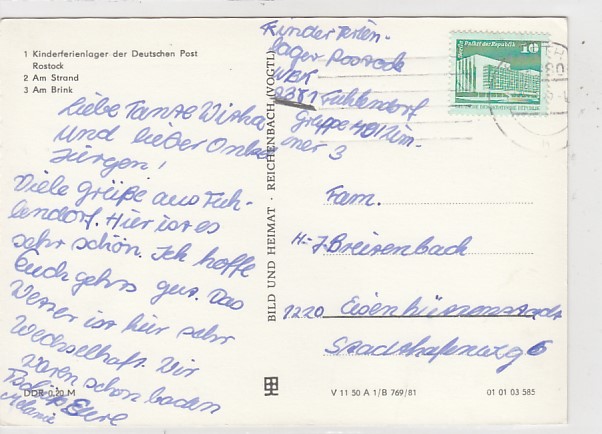 1 Kinderferienlager der Deutschen Post
Rostock
2 Am Strand
3 Am Brink
Liebe Tante Wisha
und lieber Onkel
Jürgen!
Viele grüße aus Fuh-
lendorf. Hier ist es
sehr schön. Ich hoffe
Euch gehts gut. Das
Wetter ist hier sehr
Wechselhaft. Wir
waren schon baden
Eure
Melanie
DDR 0,20 M
BILD UND HEIMAT · REICHENBACH (VOGTL)
Kinder ferien-
lager Rostock
2381 Fuhlendorf
Gruppe 401 Zim-
mer 3
Palast der Republik
10
DEUTSCHE DEMOKRATISCHE REPUBLIK
Fam.
H-J. Breisenbach
1220 Eisenhüttenstadt
Stadthafenweg 6
V 11 50 A 1/B 769/81
01 01 03 585